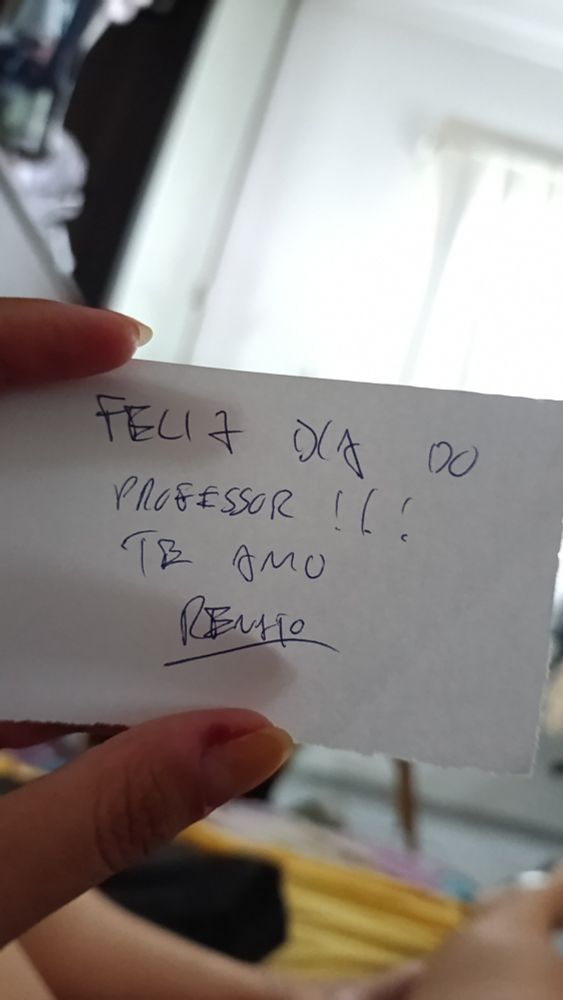 FELIZ DIA DO
PROFESSOR !!!
TE AMO
RENATO